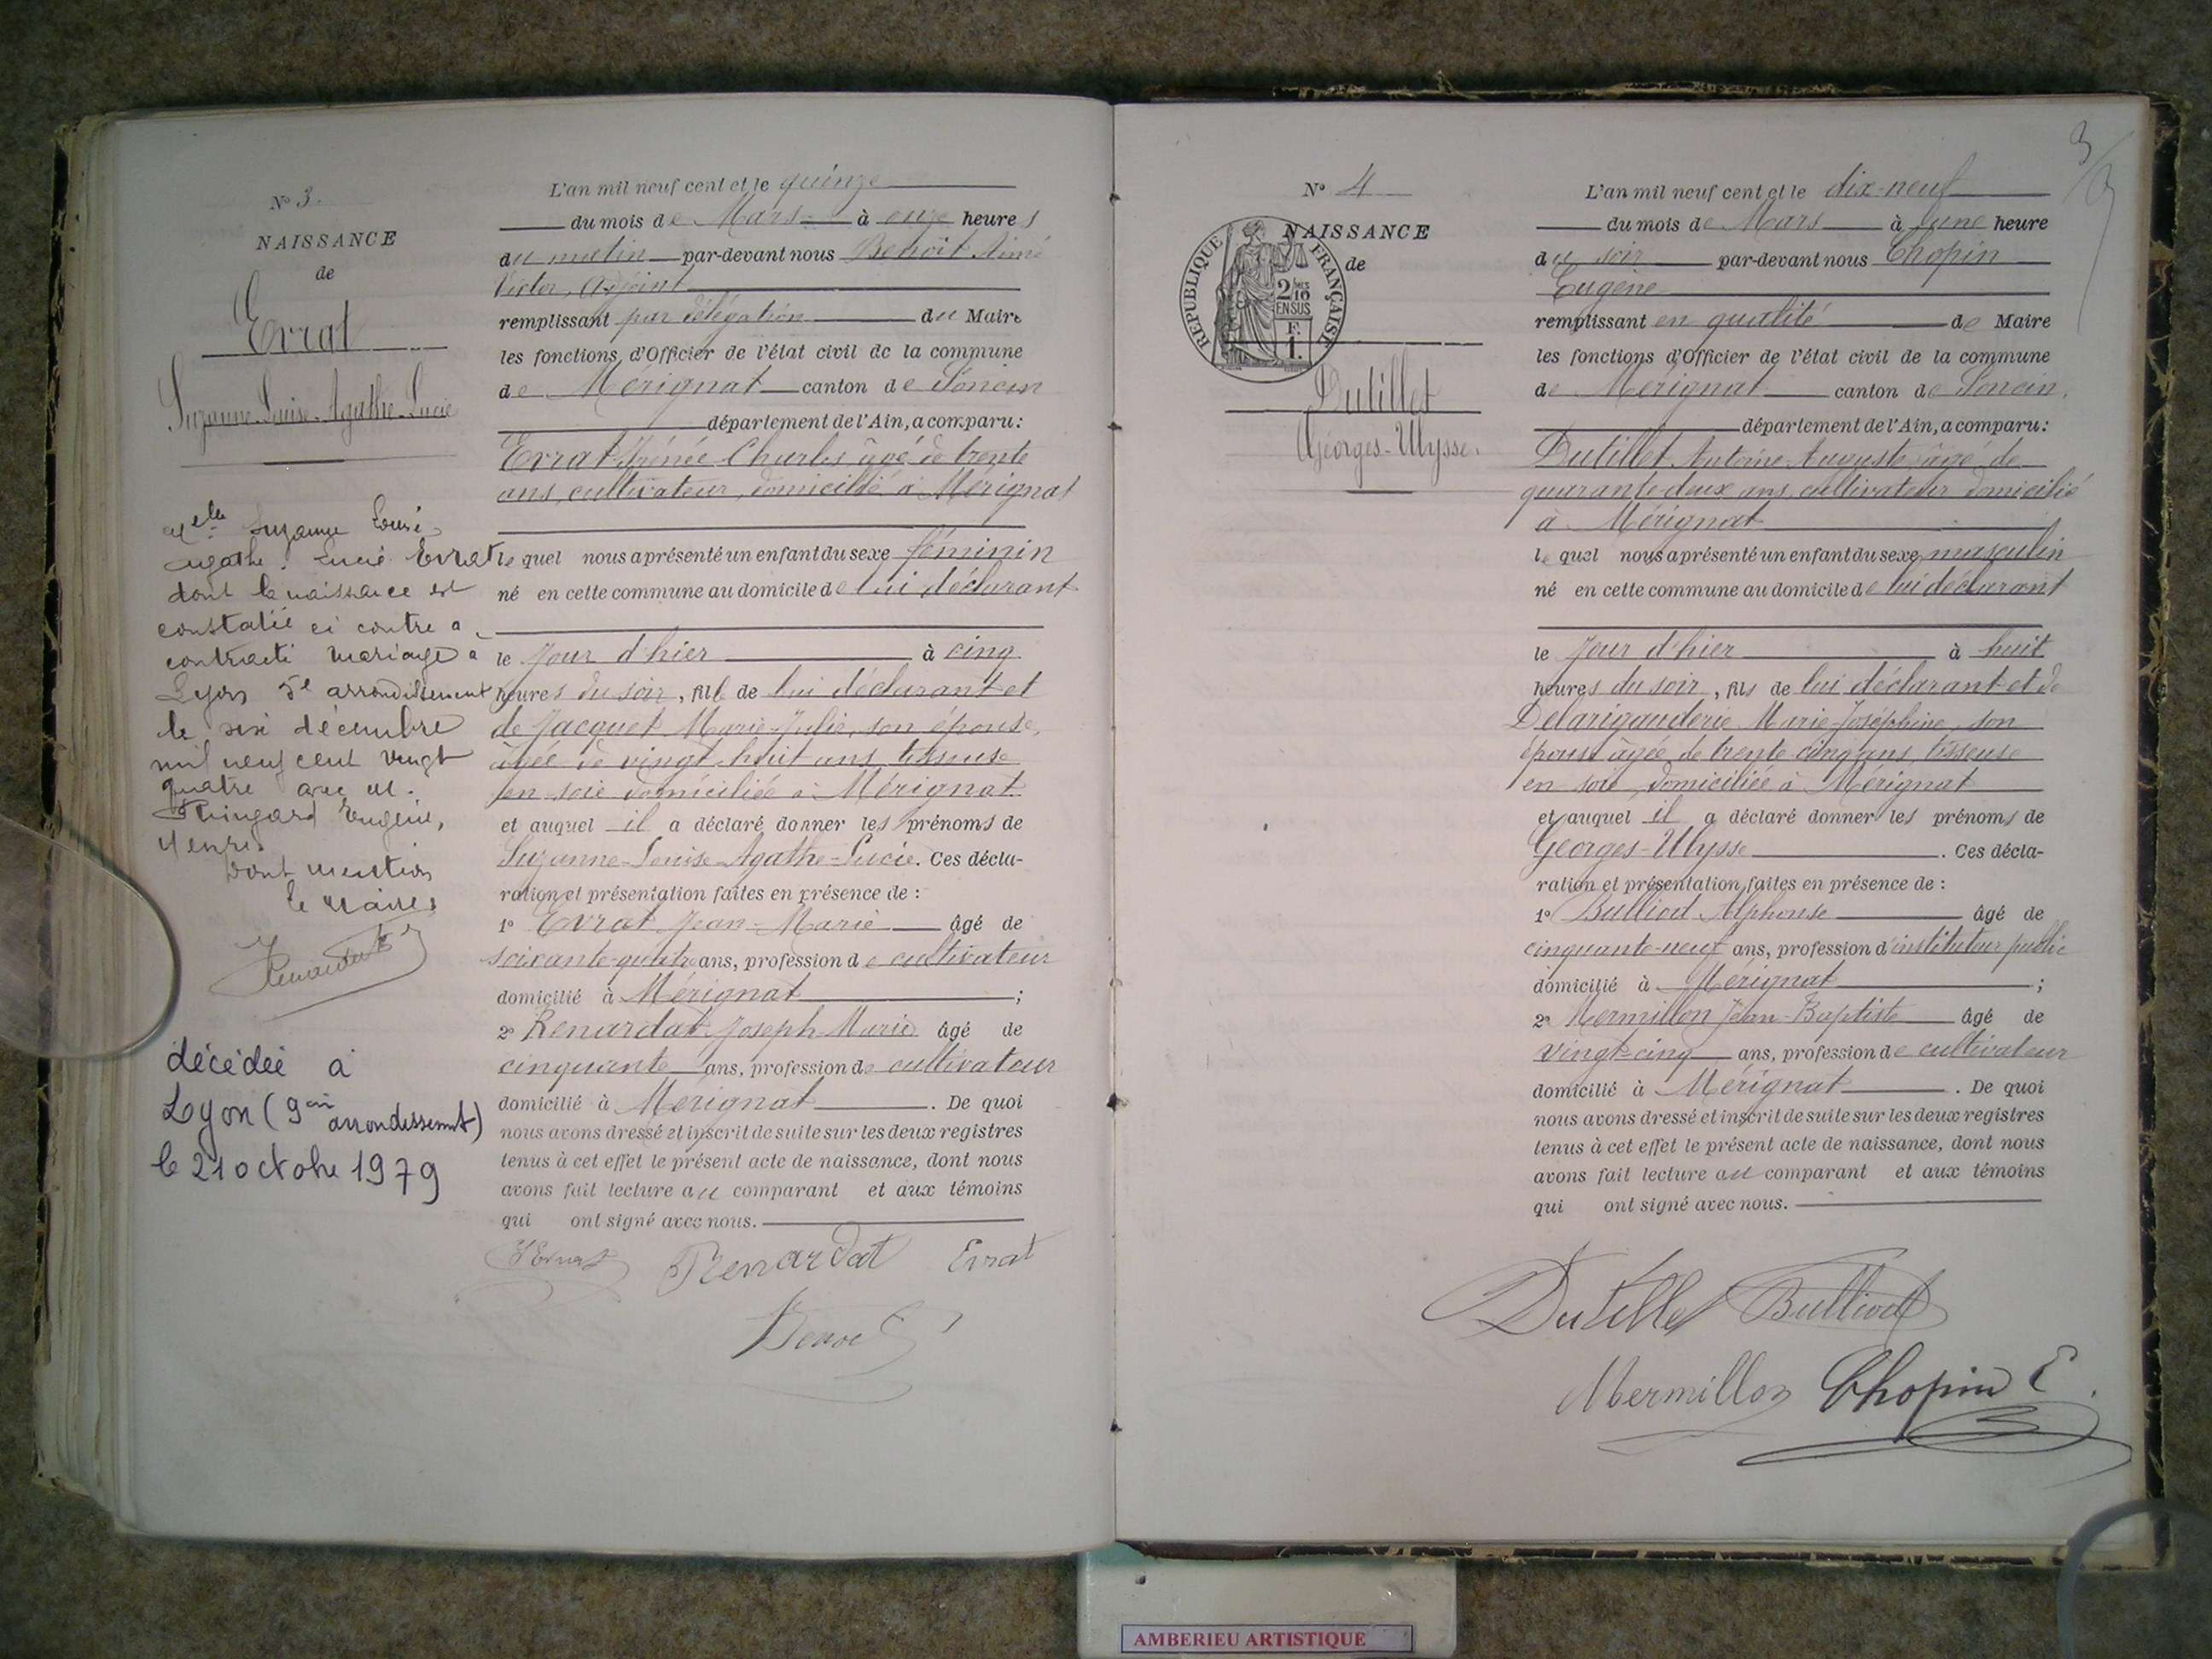 N° 3.
NAISSANCE
de
Evrat
Suzanne-Louise-Agathe-Lucie
Melle Suzanne Louise
Agathe Lucie Evrat
dont la naissance est
constatée ci contre a
contracté mariage à
Lyon 5e arrondissement
le six décembre
mil neuf cent vingt
quatre avec M.
Eugène,
Henri
Dont mention
le Maire
décédée à
Lyon (9em arrondissement)
le 21 octobre 1979
L'an mil neuf cent et le quinze
du mois de Mars à onze heures
du matin par-devant nous Benoît Aimé
Victor, adjoint
remplissant par délégation du Maire
les fonctions d'Officier de l'état civil de la commune
de Mérignat canton de Poncin
département de l'Ain, a comparu:
Evrat Irénée Charles âgé de trente
ans, cultivateur, domicilié à Mérignat
lequel nous a présenté un enfant du sexe féminin
né en cette commune au domicile de lui déclarant
le jour d'hier à cinq
heures du soir, fille de lui déclarant et
de Jacquet Marie-Julie, son épouse,
âgée de vingt-huit ans, tisseuse
en soie domiciliée à Mérignat
et auquel il a déclaré donner les prénoms de
Suzanne-Louise-Agathe-Lucie. Ces décla-
ration et présentation faites en présence de :
1° Evrat Jean-Marie âgé de
soixante-quatre ans, profession de cultivateur
domicilié à Mérignat ;
2° Renardat Joseph-Marie âgé de
cinquante ans, profession de cultivateur
domicilié à Mérignat . De quoi
nous avons dressé et inscrit de suite sur les deux registres
tenus à cet effet le présent acte de naissance, dont nous
avons fait lecture au comparant et aux témoins
qui ont signé avec nous.
Evrat Renardat Evrat
Benoît
3
N° 4
NAISSANCE
de
RÉPUBLIQUE FRANÇAISE
2/10
EN SUS
F.
1.
Dutillet
Georges-Ulysse.
L'an mil neuf cent et le dix-neuf
du mois de Mars à une heure
du soir par-devant nous Chopin
Eugène
remplissant en qualité de Maire
les fonctions d'Officier de l'état civil de la commune
de Mérignat canton de Poncin.
département de l'Ain, a comparu:
Dutillet Antoine-Auguste âgé de
quarante-deux ans, cultivateur domicilié
à Mérignat
lequel nous a présenté un enfant du sexe masculin
né en cette commune au domicile de lui déclarant
le jour d'hier à huit
heures du soir, fils de lui déclarant et de
Delarigauderie Marie-Joséphine, son
épouse âgée de trente-cinq ans, tisseuse
en soie, domiciliée à Mérignat
et auquel il a déclaré donner les prénoms de
Georges-Ulysse . Ces décla-
ration et présentation faites en présence de :
1° Bulliod Alphonse âgé de
cinquante-neuf ans, profession d'instituteur public
domicilié à Mérignat ;
2° Mermillon Jean-Baptiste âgé de
vingt-cinq ans, profession de cultivateur
domicilié à Mérignat . De quoi
nous avons dressé et inscrit de suite sur les deux registres
tenus à cet effet le présent acte de naissance, dont nous
avons fait lecture au comparant et aux témoins
qui ont signé avec nous.
Dutillet Bulliod
Mermillon Chopin E.
AMBERIEU ARTISTIQUE